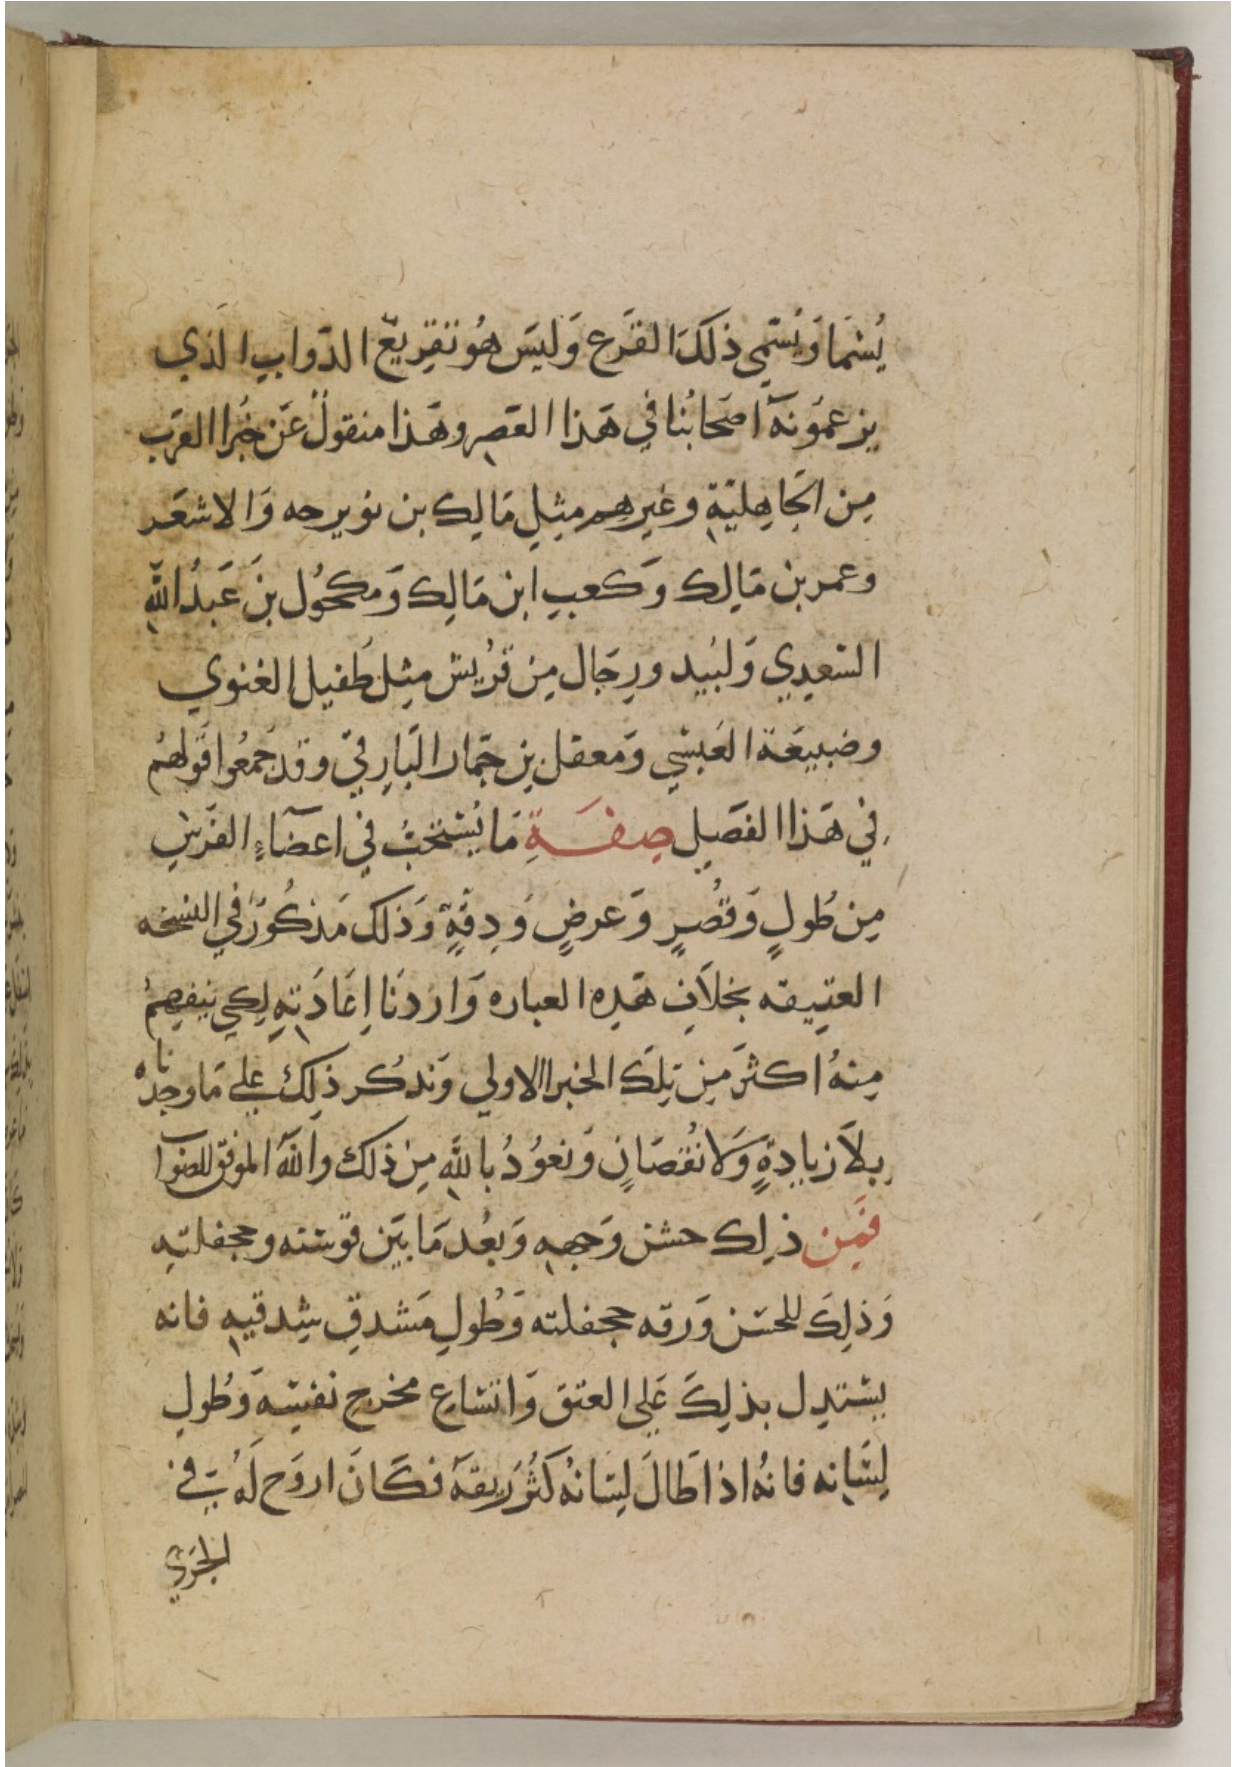 يُسْمَا وَيُسَمِّي ذلكَ القَرَع وَليسَ هُو تَقرِيعّ الدّوابِ الَذي
يزعمُونهَ اصَحابُنا في هَذا العَصِر وهَذا منقولٌ عَن خُبرا العَرَب
مِن الجَاهِليّةِ وغيرهم مثِلِ مَالِك بن نويرحه وَالاشعَر
وعمر بن مَالِك وَكعبِ ابن مَالِك وَمكحُول بنَ عَبدُ اللّهِ
السَعِدِي وَلبُيد ورِجَال مِن قرُيش مثِل طُفيل الغنوي
وضبيعَة العَبسِي وَمعقل بن حّمار البَارِقيّ وقد جمعُوا قَولهُم
في هَذا الفصَلِ صِفَةِ مَا يُستَحَبُّ في اعضَآءِ الفرَسِ
مِن طُولٍ وَقُصُرٍ وَعرضٍ وَدِقّةٍ وَذلك مَذكُورٌ في النسخه
العتِيقه بخلاَفِ هَذِه العباره وَاردنَا اِعَادَتهِ لِكي ينفِهمُ
مِنهُ اكثرَ مِن تِلكَ الخبرا الاولي وَندكُر ذِلكَ علي مَا وجدناه
بِلاَ زيادِةٍ وَلاَ نُقصَانٍ وَنعوُدُ باللّهِ مِن ذلك واللّهُ الموفق للصَوآب
فمَِن ذلِك حسُن وَجههِ وَبعُد مَا بَين قوَنسَه وجحفلتِه
وَذلِكَ للحسَن وَرقه جحفلته وَطُولِ مَشدقِ شِدقيهِ فانه
يستَدِل بذلِكَ عَلي العتق وَاتسَاع مخرج نفسَهِ وَطُولِ
لِسَانِه فانهُ اذا طَالَ لِسَانهُ كَثُرَ رِيقهَ فكَانَ اروَح لَهُ في
الجَرَي